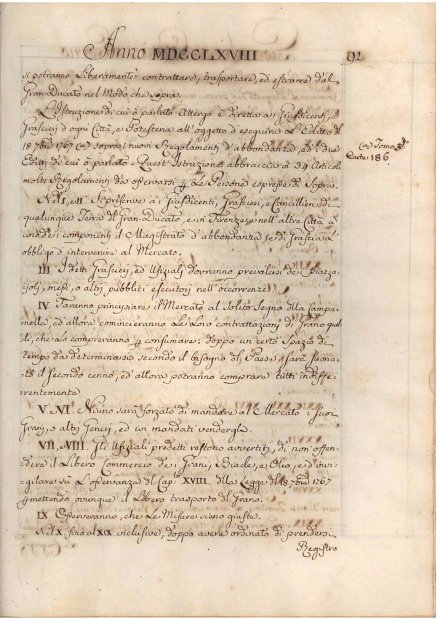 Anno MDCCLXVIII 92
si potranno Liberamente contrattare, trasportare, ed estrarre dal
Gran-Ducato nel Modo che sopra.
L'Istruzione di cui è parlato Attergo è diretta ai Giusdicenti, e
Grascieri d'ogni Città, e Potesteria all'oggetto d'eseguire L'Editto dì
18 7bre 1767 (a) sopra i nuovi Regolamenti d'abbondanza, ed i due
Editti di cui è parlato. Quest'Istruzione abbraccia in 34 Articoli
molti Regolamenti da osservarsi Le Persone espresse di Sopra.
(a) Tomo
Carte 186
Nel I, e II Si prescrive a i Giusdicenti, Grascieri, e Cancellieri di
qualunque Terra del Gran-Ducato, e in Firenze, e nell'altre Città a
uno dei componenti il Magistrato d'abbondanza, e di Grascia l'
obbligo d'intervenire al Mercato.
III I detti Grascieri, ed Ufiziali dovranno prevalersi dei Piazza-
joli, mesi, o altri pubblici esecutori nell'occorrenze.
IV Faranno principiare il Mercato al Solito Segno della Campa-
nella, ed allora cominceranno Le Loro contrattazioni di Grano quel-
li, che Lo compreranno consumare: doppo un certo Spazio di
tempo da determinarsi secondo il bisogno del Paese si farà suona-
re il secondo cenno, ed allora potranno comprare tutti indiffe-
rentemente
V e VI. Niuno sarà forzato di mandare al Mercato i suoi
Grani, o altri Generi, ed in mandati vendergli.
VII, e VIII. Gli Ufiziali predetti restono avvertiti, di non offen-
dere il Libero Commercio dei Grani, Biade, e Olio, e di invi-
gilare su L'osservanza del Cap. XVIII. della Legge dei 18 7bre 1767
permettendo ovunque il Libero trasporto di Grano.
IX Osserveranno, che Le Misure sieno giuste.
Nel X fino al XIX inclusive, doppo avere ordinato di prendere
Registro